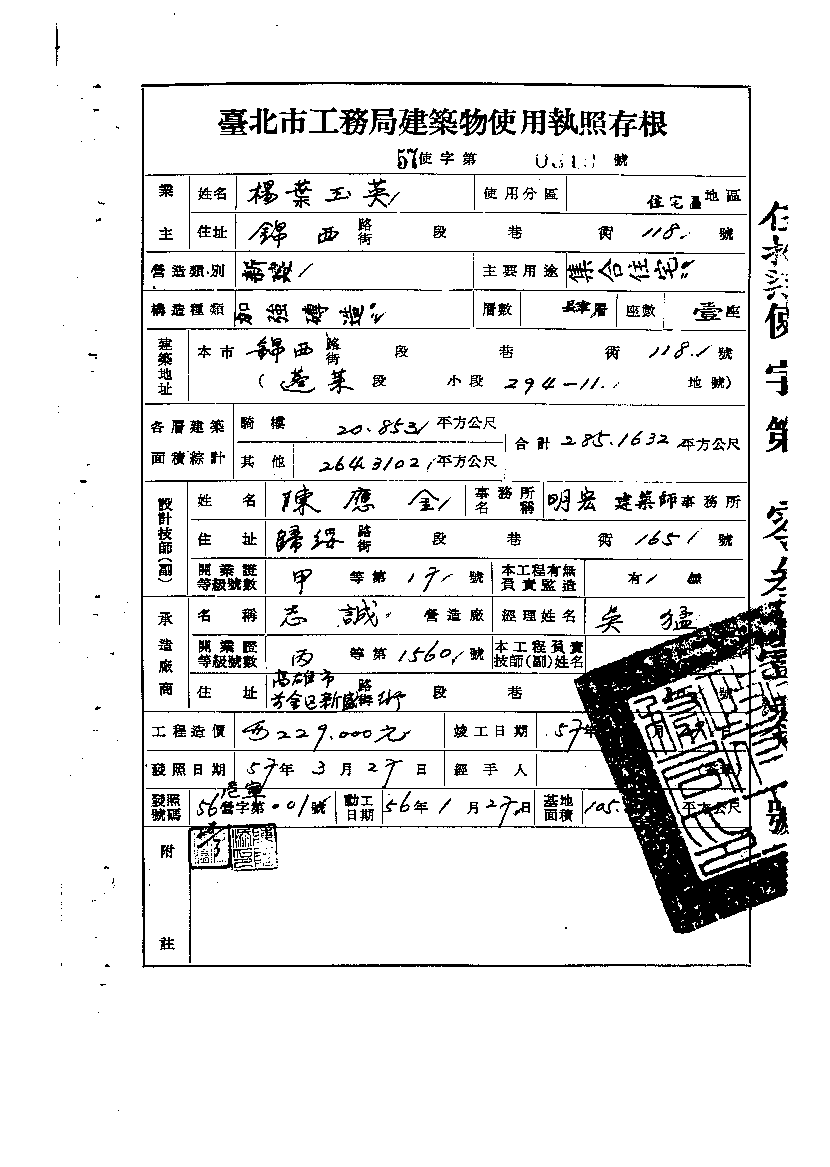 臺北市工務局建築物使用執照存根
57使字第 號
業主 姓名 楊葉玉英 使用分區 住宅區地區
住址 錦西 路街 段 巷 衖 118 號
營造類別 新設 主要用途 集合住宅
構造種類 加強磚造 層數 層 座數 壹座
建築地址 本市 錦西 路街 段 巷 衖 118 號
(蓬萊 段 小段 294-11 地號)
各層建築面積綜計 騎樓 20.853 平方公尺 合計 285.1632 平方公尺
其他 264.3102 平方公尺
設計技師(副) 姓名 陳應金 事務所名稱 明宏 建築師事務所
住址 歸綏 路街 段 巷 衖 165 號
開業證等級號數 甲 等第 號 本工程有無負責監造 有 無
承造廠商 名稱 志誠 營造廠 經理姓名 吳猛
開業證等級號數 丙 等第 1560 號 本工程負責技師(副)姓名
住址 高雄市 路街 段 巷 號
工程造價 229.000元 竣工日期 57年 月 日
發照日期 57年 3月27日 經手人
發照號碼 56營字第 號 動工日期 56年1月27日 基地面積 105. 平方公尺
附註
使字第
號